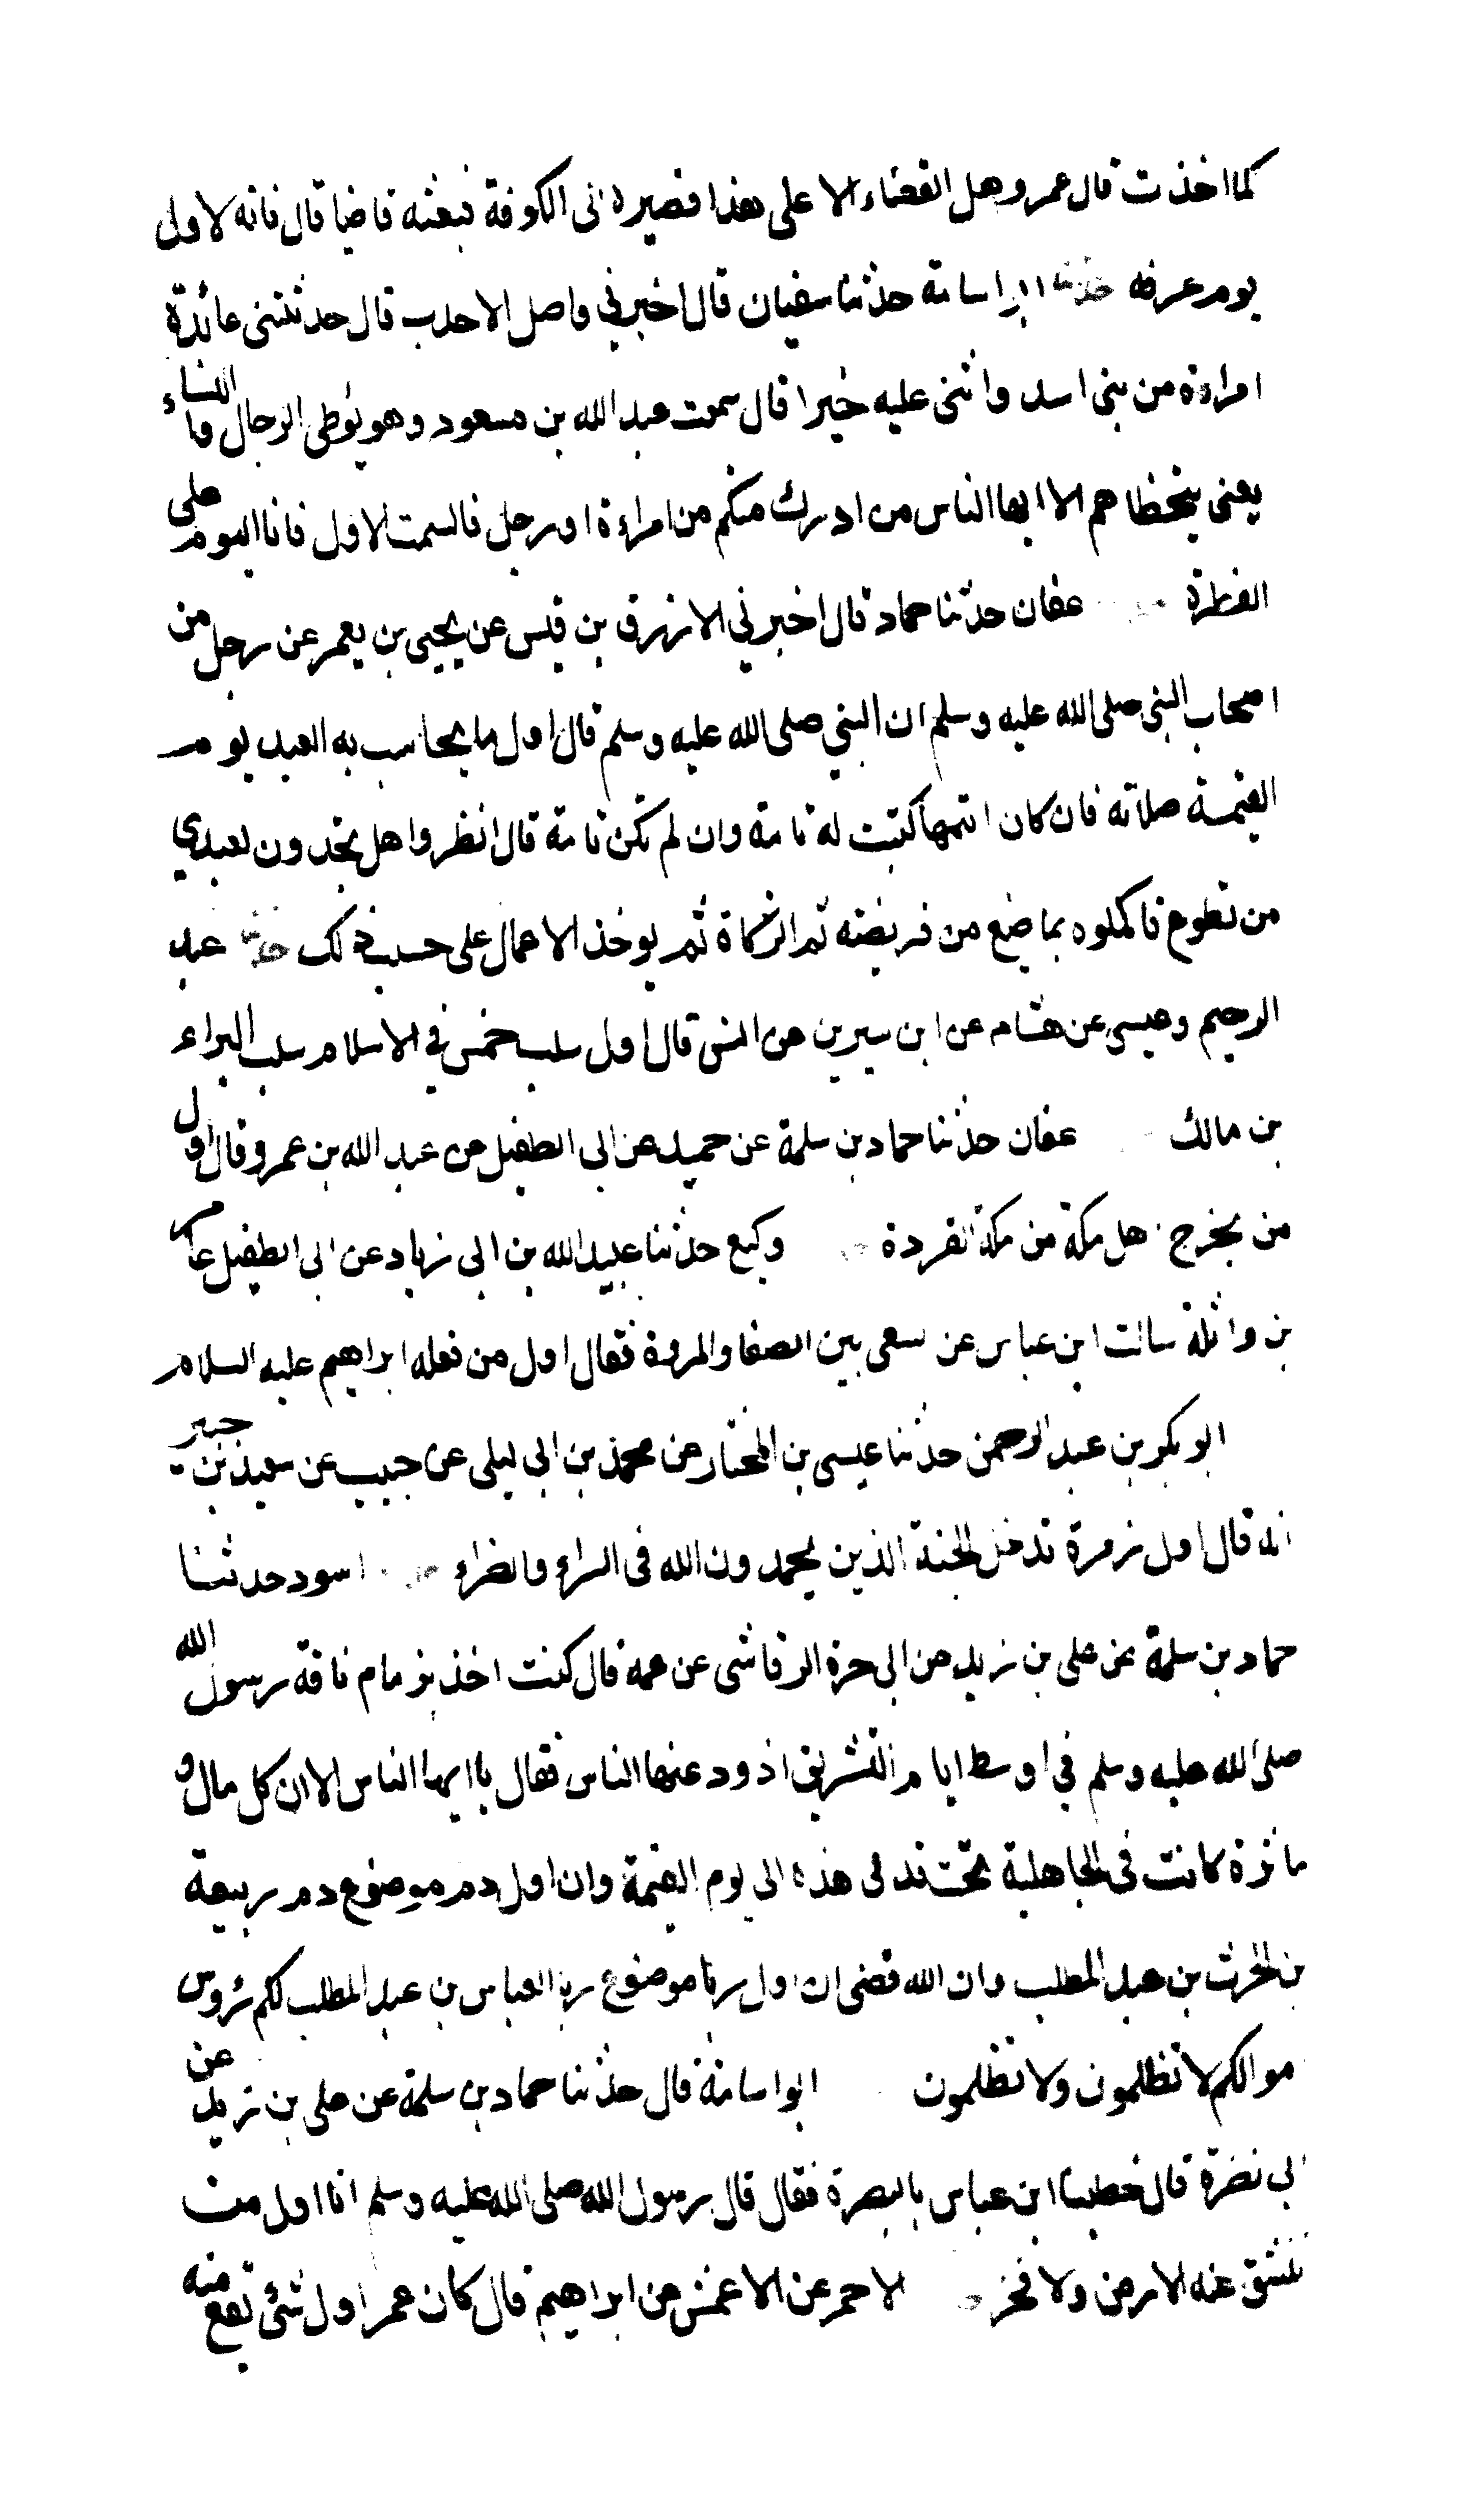 كما اخذت قال عمر وهل القضاء الا على هذا فصيره الى الكوفة فبعثه قاضيا قال فانه لاول
يوم عرفه حدثنا ابو اسامة حدثنا سفيان قال اخبرني واصل الاحدب قال حدثتنى عائذة
امراءة من بنى اسد واثنى عليه خيرا قال سمعت عبد الله بن مسعود وهو يوطى الرجال والنساء
يعنى يتخطاهم الا ايها الناس من ادرك منكم من امراءة او رجل فالسمت الاول فانا اليوم على
الفطرة عفان حدثنا حماد قال اخبرني الازرق بن قيس عن يحيى بن يعمر عن رجل من
اصحاب النبي صلى الله عليه وسلم ان النبي صلى الله عليه وسلم قال اول ما يحاسب به العبد يوم
القيمة صلاته فان كان اتمها كتبت له تامة وان لم تكن تامة قال انظروا هل تجدون لعبدي
من تطوع فاكملوه بما ضيع من فريضته ثم الزكاة ثم يوخذ الاعمال على حسب ذلك حدثنا عبد
الرحيم وعيسى عن هشام عن ابن سيرين عن انس قال اول سلب خمس في الاسلام سلب البراء
بن مالك عفان حدثنا حماد بن سلمة عن حميد عن ابى الطفيل عن عبد الله بن عمرو قال اول
من يخرج هل مكة من مكة القردة وكيع حدثنا عبيد الله بن ابى زياد عن ابى الطفيل عامر
بن واثلة سالت ابن عباس عن سعى بين الصفا والمروة فقال اول من فعله ابراهيم عليه السلام
ابو بكر بن عبد الرحمن حدثنا عيسى بن المختار عن محمد بن ابى ليلى عن حبيب عن سعيد بن جبير
انه قال اول زمرة تدخل الجنة الذين يحمدون الله فى السراء والضراء اسود حدثنا
حماد بن سلمة عن على بن زيد عن ابى حرة الرقاشى عن عمه قال كنت اخذ بزمام ناقة رسول الله
صلى الله عليه وسلم في اوسط ايام التشريق اذود عنها الناس فقال يا ايها الناس الا ان كل مال و
ماثرة كانت فى الجاهلية تحت قدمى هذه الى يوم القيمة وان اول دم موضوع دم ربيعة
بن الحرث بن عبد المطلب وان الله قضى ان اول ربا موضوع ربا العباس بن عبد المطلب لكم رؤس
موالكم لا تظلمون ولا تظلمون ابو اسامة قال حدثنا حماد بن سلمة عن على بن زيد عن
ابى نضرة قال خطبنا ابن عباس بالبصرة فقال قال رسول الله صلى الله عليه وسلم انا اول من
تنشق عنه الارض ولا فخر لاحمر عن الاعمش عن ابراهيم قال كان عمر اول شئ تقع منه